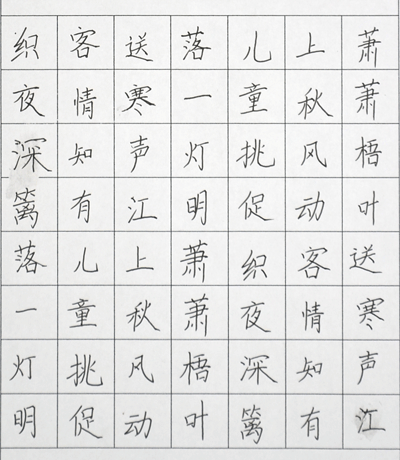 萧萧梧叶送寒声江
上秋风动客情知有
儿童挑促织夜深篱
落一灯明萧萧梧叶
送寒声江上秋风动
客情知有儿童挑促
织夜深篱落一灯明